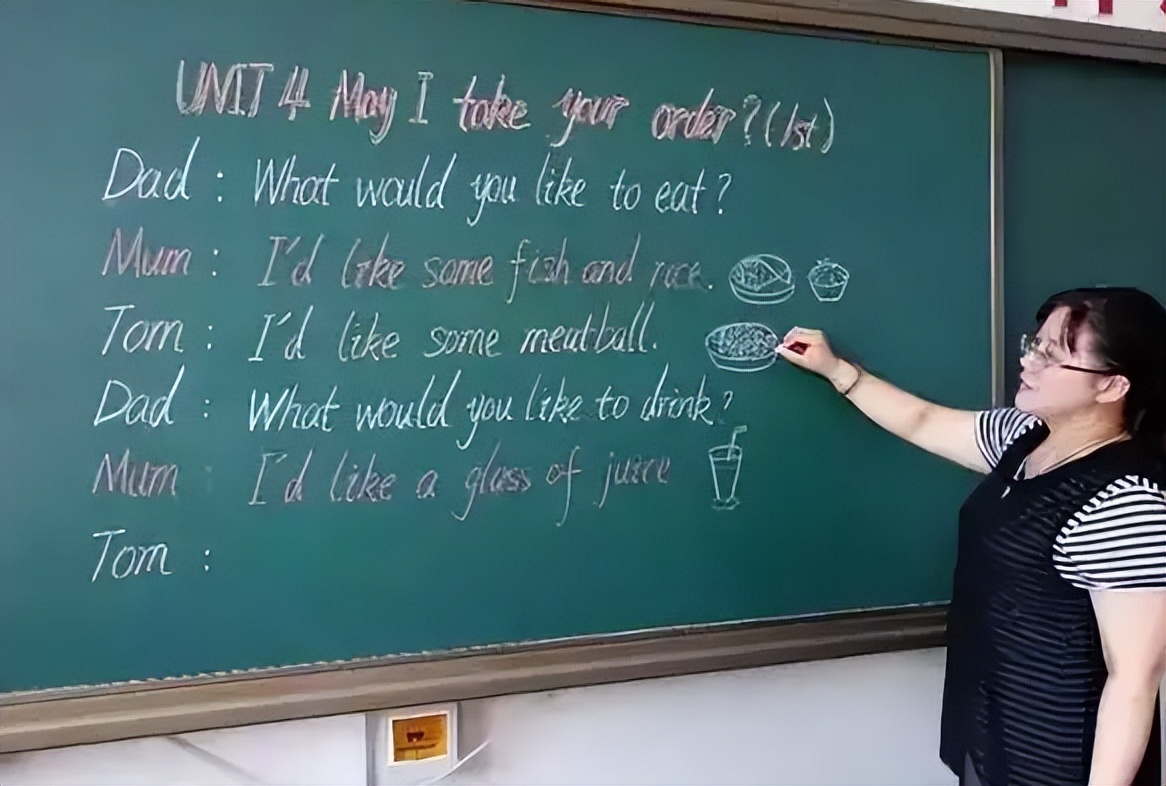 UNIT 4 May I take your order? (1st)
Dad : What would you like to eat?
Mum : I'd like some fish and rice.
Tom : I'd like some meatball.
Dad : What would you like to drink?
Mum : I'd like a glass of juice
Tom :